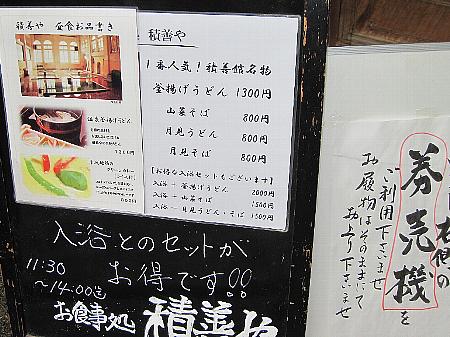 積善や 昼食お品書き
温泉釜揚げうどん
グリーンカレー
積善や
1番人気!積善館名物
釜揚げうどん 1300円
山菜そば 800円
月見うどん 800円
月見そば 800円
【お得な入浴セットもございます】
入浴+釜揚げうどん 2000円
入浴+山菜そば 1500円
入浴+月見うどん・そば 1500円
入浴とのセットが
お得です!!
11:30
~14:00迄
お食事処 積善や
右側の
券売機を
ご利用下さいませ
お履物はそのままにて
お上り下さいませ